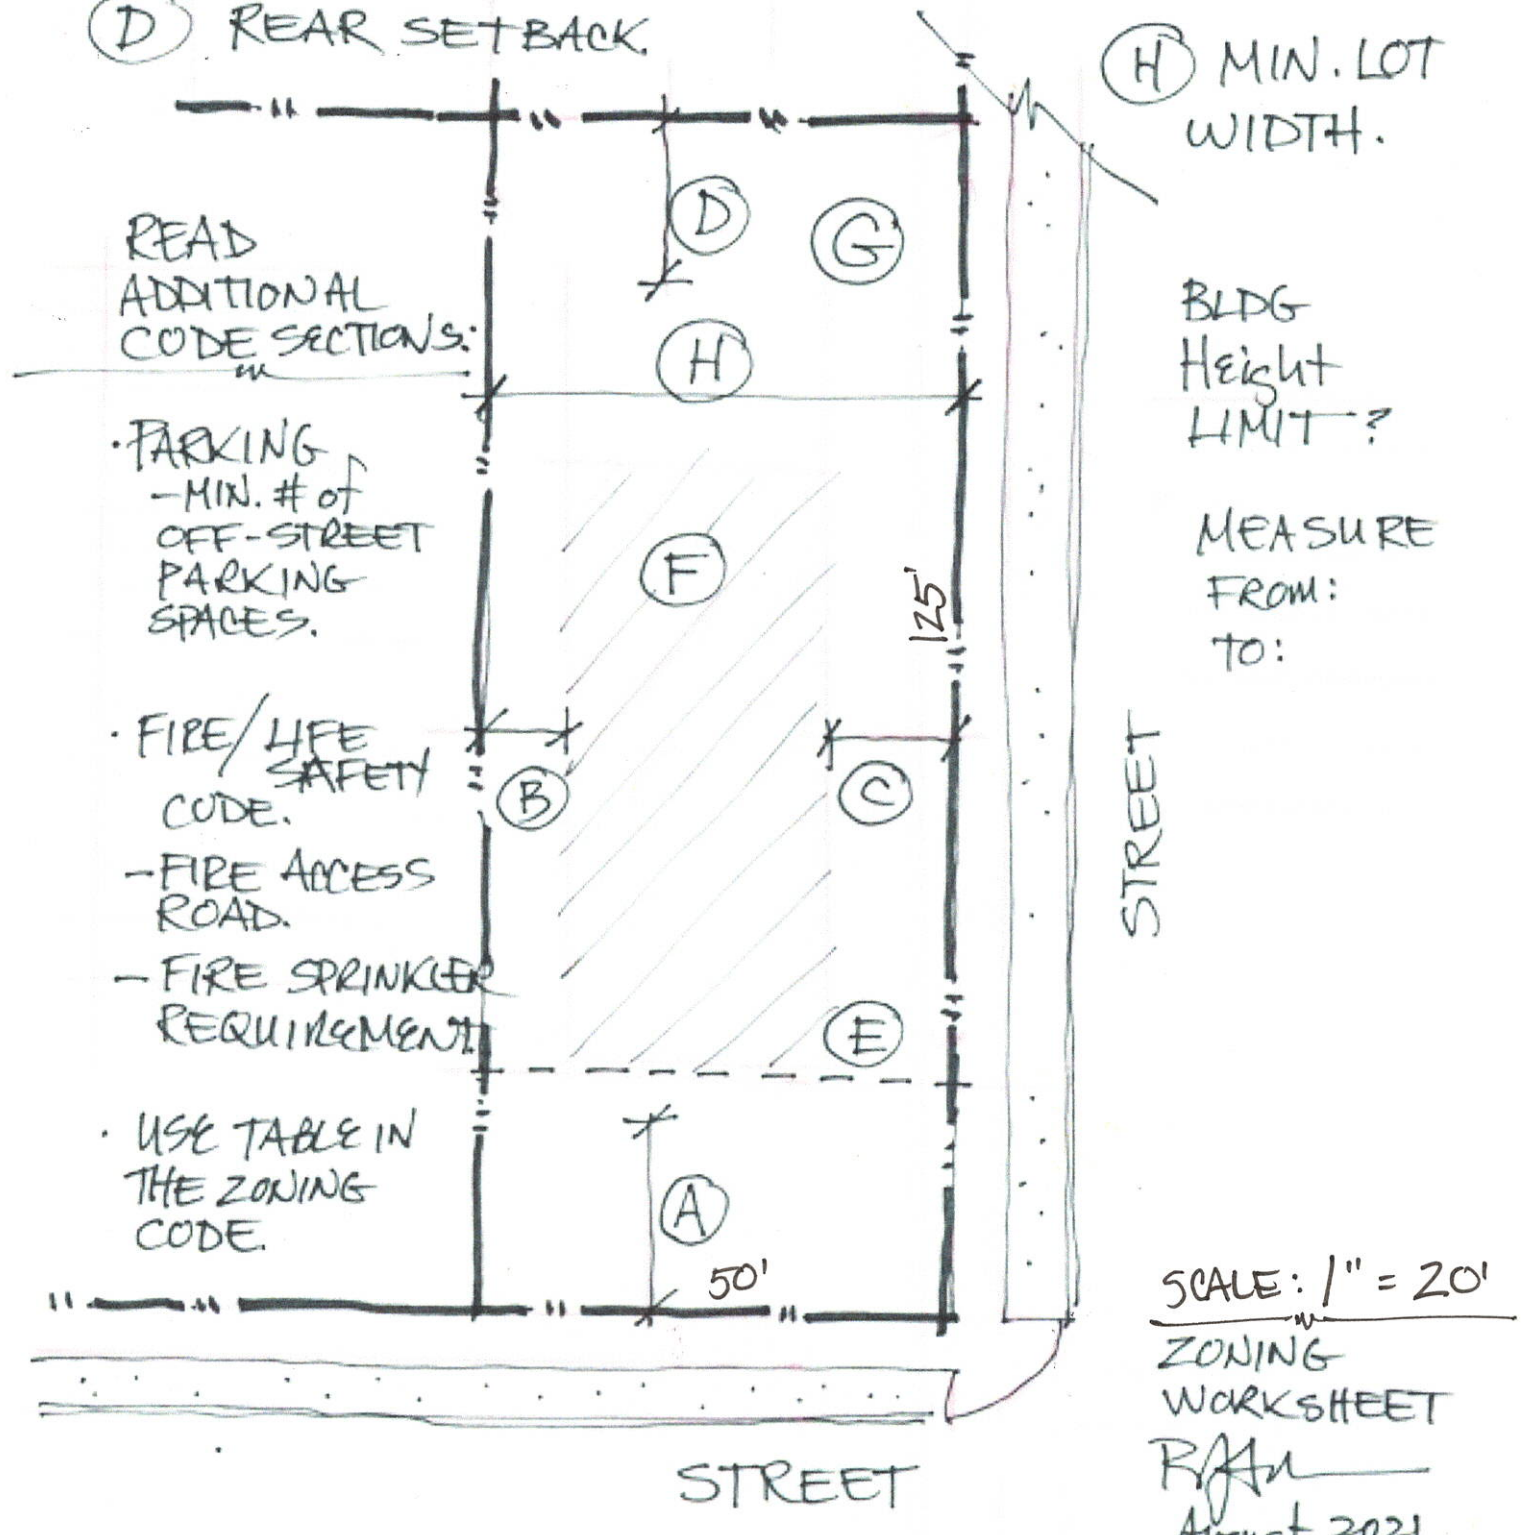 D REAR SETBACK.
H MIN. LOT
WIDTH.
READ
ADDITIONAL
CODE SECTIONS:
· PARKING
- MIN. # of
OFF-STREET
PARKING
SPACES.
· FIRE/LIFE
SAFETY
CODE.
- FIRE ACCESS
ROAD.
- FIRE SPRINKLER
REQUIREMENT
· USE TABLE IN
THE ZONING
CODE.
D
G
H
F
125'
B
C
E
A
50'
BLDG
Height
LIMIT?
MEASURE
FROM:
TO:
STREET
STREET
SCALE: 1" = 20'
ZONING
WORKSHEET
August 2021